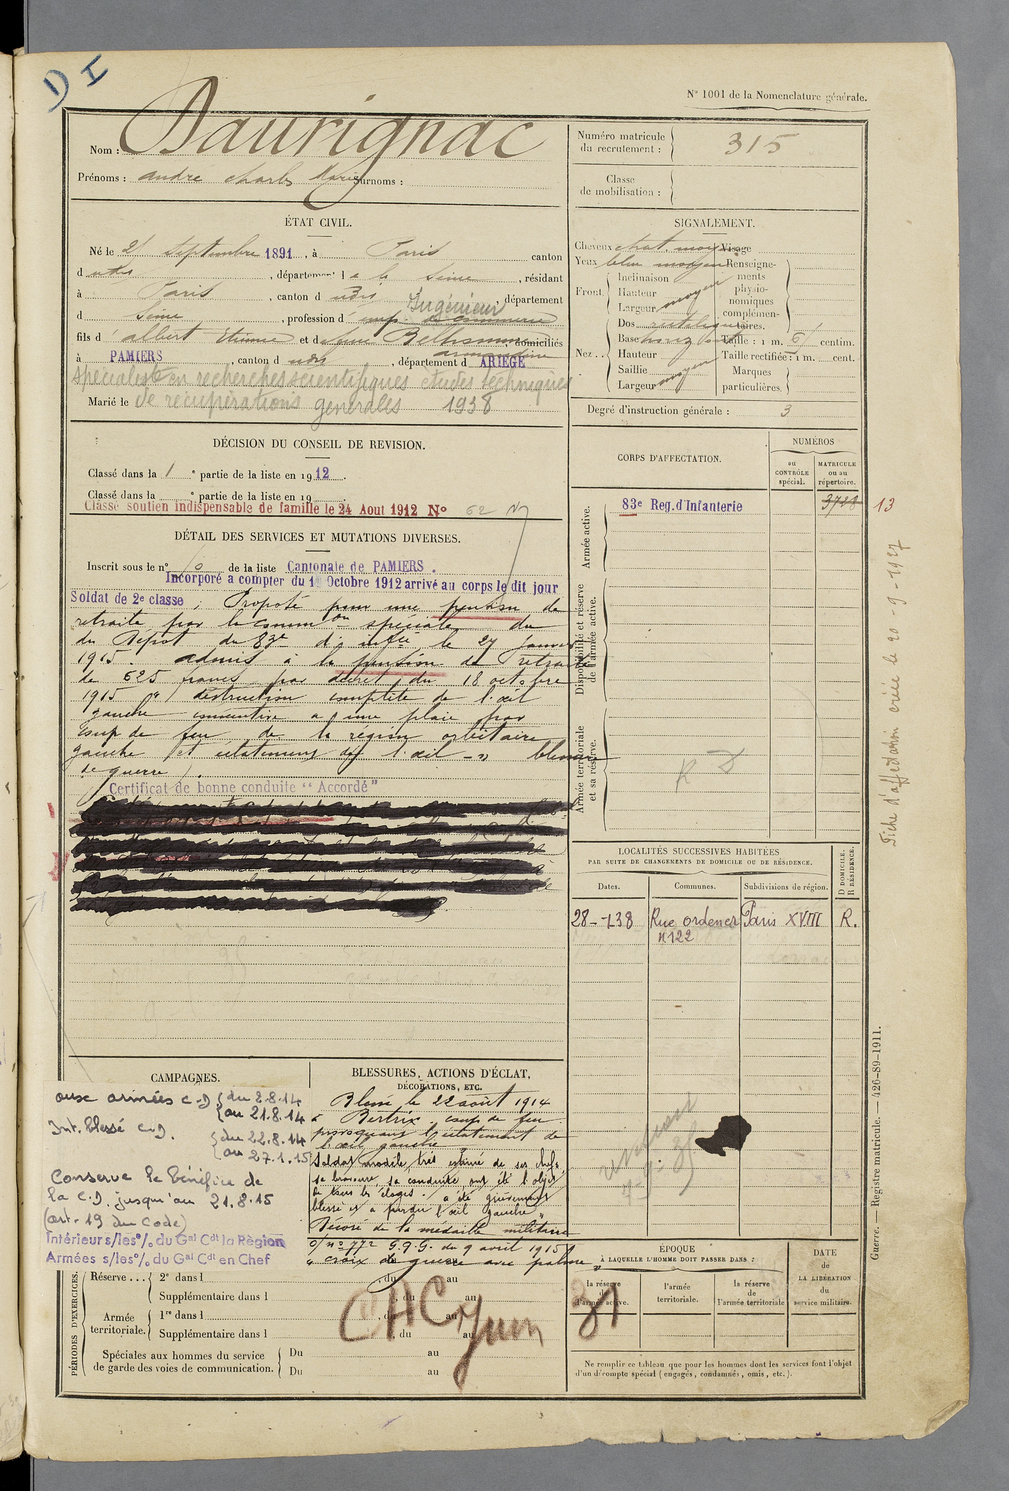 D I
N° 1001 de la Nomenclature générale.
Nom : Daurignac
Prénoms : andré charles Marie Surnoms :
Numéro matricule du recrutement : 315
Classe de mobilisation :
ÉTAT CIVIL.
Né le 21 Septembre 1891, à Paris canton
d udts, département de la Seine, résidant
à Paris, canton d udts, département
Ingénieur
d Seine, profession d emp. de commerce
fils d' albert Etienne et d domiciliés
à PAMIERS, canton d udts, département d ARIEGE
spécialiste en recherches scientifiques études techniques
Marié le de récupérations générales 1938
SIGNALEMENT.
Cheveux chat. moyen Visage
Yeux bleu moyen Renseigne-
Front Inclinaison ments
Hauteur physio-
Largeur moyen nomiques
complémen-
Nez Dos rectiligne taires.
Base horizontale Taille : 1 m. 61 centim.
Hauteur Taille rectifiée : 1 m. cent.
Saillie Marques
Largeur moyen particulières.
Degré d'instruction générale : 3
DÉCISION DU CONSEIL DE REVISION.
Classé dans la 1 e partie de la liste en 1912.
Classé dans la e partie de la liste en 19
Classé soutien indispensable de famille le 24 Aout 1912 N° 62
DÉTAIL DES SERVICES ET MUTATIONS DIVERSES.
Inscrit sous le n° 10 de la liste Cantonale de PAMIERS.
Incorporé à compter du 1 Octobre 1912 arrivé au corps le dit jour
Soldat de 2e classe ; Proposé pour une pension de
retraite par la commion spéciale du
du Dépôt du 83e d'inftie le 27 janvier
1915. admis à la pension de retraite
de 625 francs par décret du 18 octobre
1915 pr destruction complète de l'œil
gauche consécutive à une plaie par
coup de feu de la région orbitaire
gauche et éclatement de l'œil -" blessure
de guerre ).
Certificat de bonne conduite "Accordé"
CORPS D'AFFECTATION.
NUMÉROS
au CONTRÔLE spécial.
MATRICULE ou au répertoire.
Armée active.
83e Reg. d'Infanterie 3728 13
Disponibilité et réserve de l'armée active.
Armée territoriale et sa réserve.
R D
Fiche d'affectation créée le 20-9-1927
LOCALITÉS SUCCESSIVES HABITÉES
PAR SUITE DE CHANGEMENTS DE DOMICILE OU DE RÉSIDENCE.
D DOMICILE. R RÉSIDENCE.
Dates. Communes. Subdivisions de région.
28-1-38 Rue ordener Paris XVIII R.
n 122
CAMPAGNES.
aux armées C.D du 2.8.14
au 21.8.14
Int. blessé C.D. du 22.8.14
au 27.1.15
Conserve le bénéfice de
la C.D. jusqu'au 21.8.15
(art. 19 du Code)
Intérieur s/les °/. du Gal Cdt la Région
Armées s/les °/. du Gal Cdt en Chef
BLESSURES, ACTIONS D'ÉCLAT,
DÉCORATIONS, ETC.
Blessé le 22 août 1914
à Bertrix coup de feu
provoquant l'éclatement de
l'œil gauche
Soldat modèle, très estimé de ses chefs,
sa bravoure, sa conduite, ont été l'objet
de tous les éloges. a été grièvement
blessé et a perdu l'œil gauche"
Décoré de la médaille militaire
o/ n° 772 G.Q.G. du 9 avril 1915
"croix de guerre avec palme"
PÉRIODES D'EXERCICES.
Réserve... 2e dans l du au
Supplémentaire dans l du au
Armée territoriale. 1re dans l du au
Supplémentaire dans l du au
Spéciales aux hommes du service
de garde des voies de communication. Du au
Du au
CHC Juin 31
ÉPOQUE
À LAQUELLE L'HOMME DOIT PASSER DANS :
la réserve de l'armée active.
l'armée territoriale.
la réserve de l'armée territoriale
DATE de LA LIBÉRATION du service militaire.
Ne remplir ce tableau que pour les hommes dont les services font l'objet
d'un décompte spécial (engagés, condamnés, omis, etc.).
Guerre. — Registre matricule. — 426-89-1911.